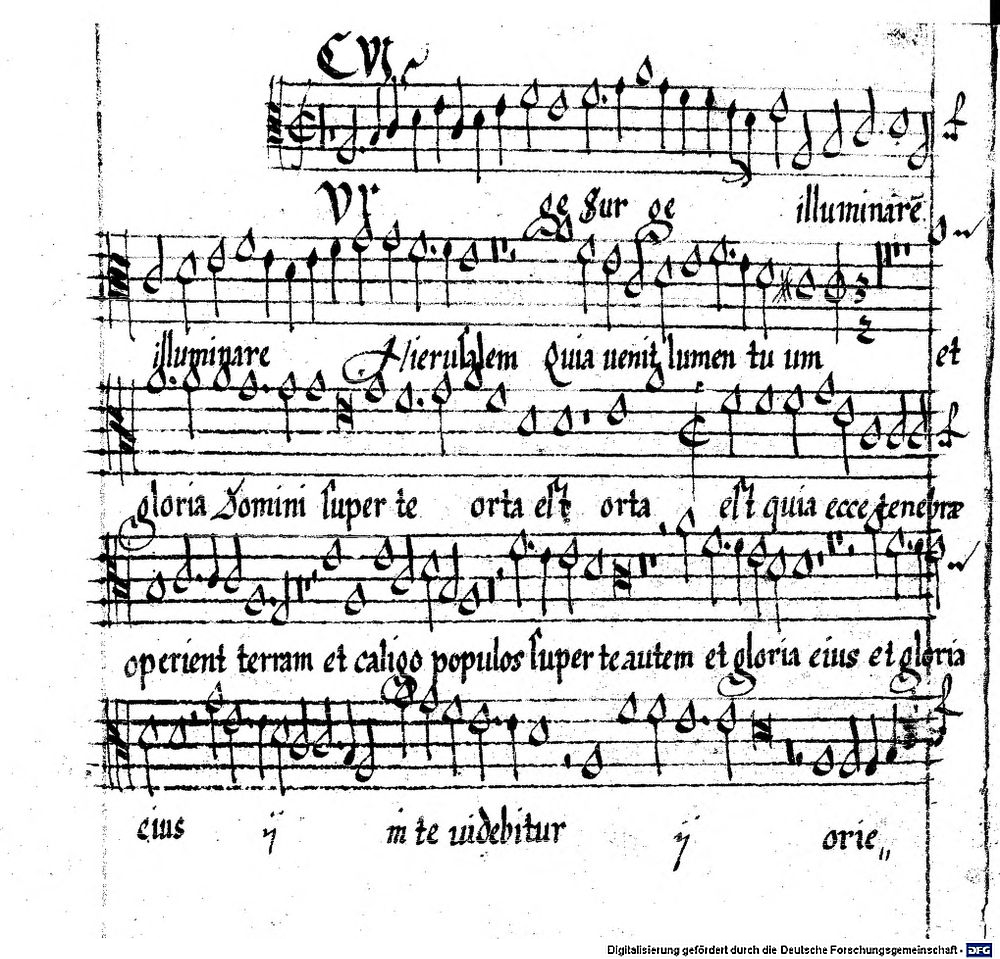 CVI
Vr ge Sur ge illuminarē
illuminare Hierusalem Quia uenit lumen tu um et
gloria Domini super te orta est orta est quia ecce tenebræ
operient terram et caligo populos super te autem et gloria eius et gloria
eius ij in te uidebitur ij orie„
Digitalisierung gefördert durch die Deutsche Forschungsgemeinschaft - DFG